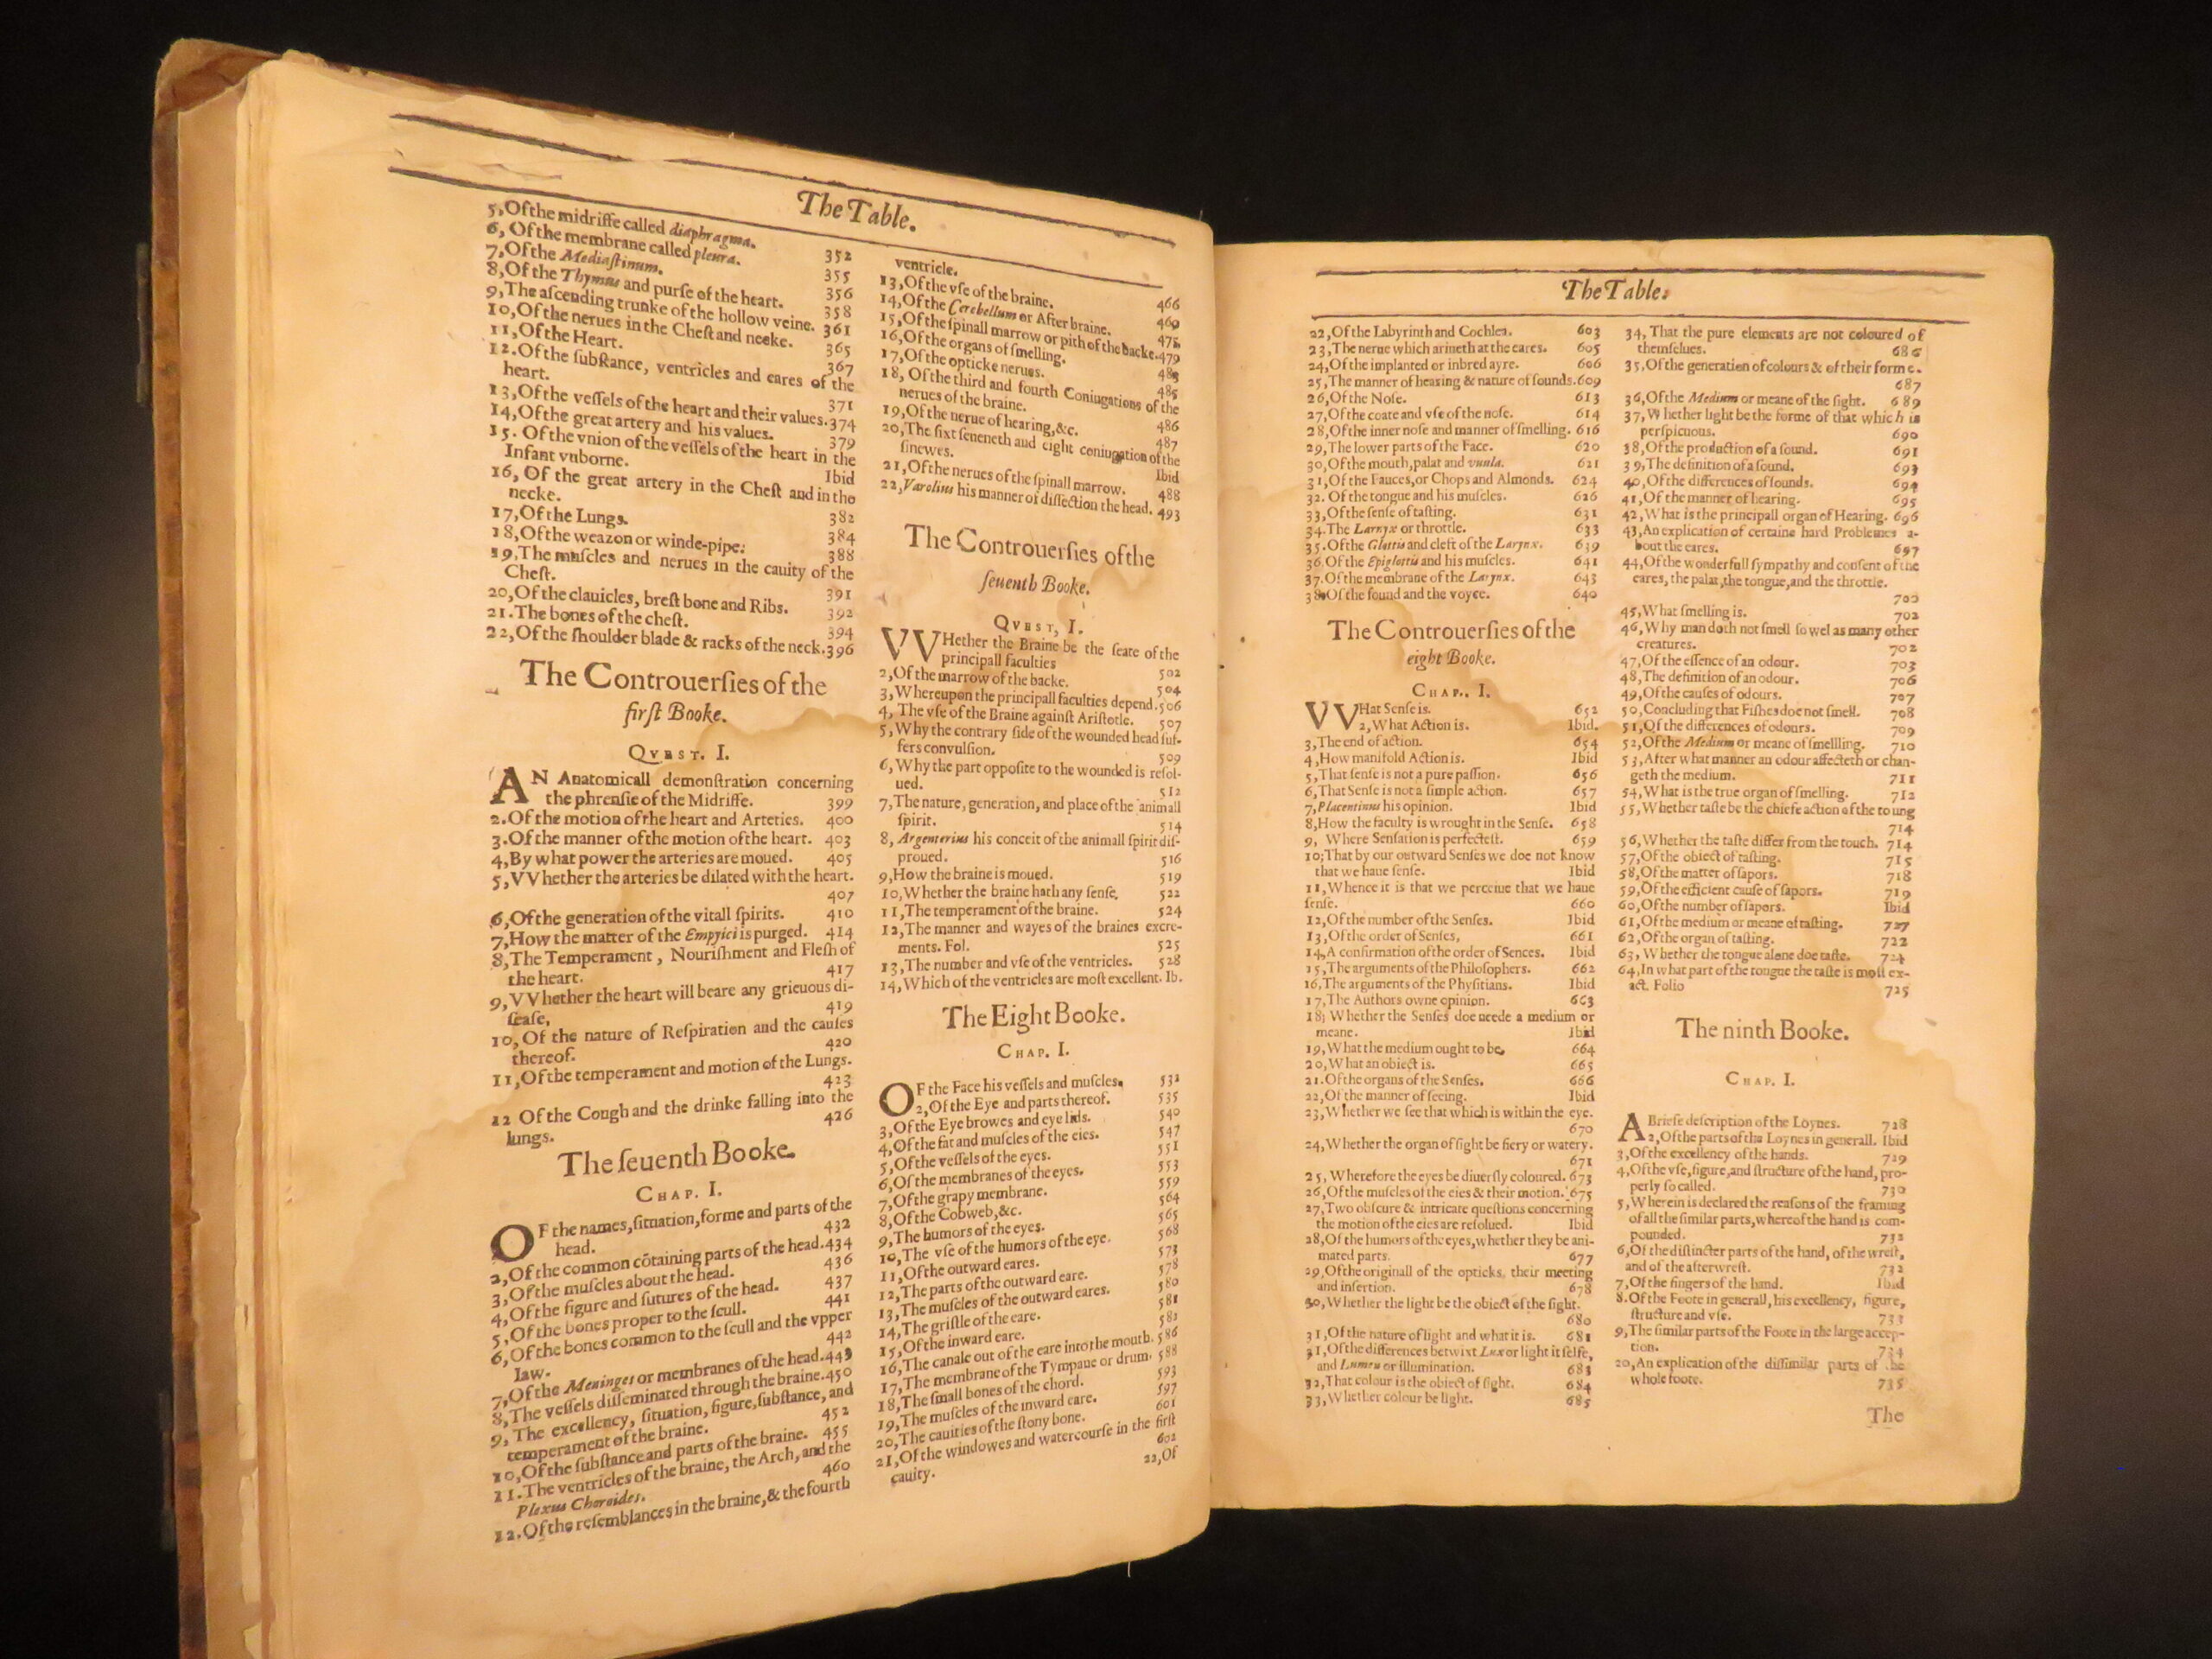 The Table.
5,Of the midriffe called diaphragma.
352
6, Of the membrane called pleura.
355
7,Of the Mediaſtinum.
356
8,Of the Thymus and purſe of the heart.
358
9,The aſcending trunke of the hollow veine. 361
10,Of the nerues in the Cheſt and necke.
365
11,Of the Heart.
367
12.Of the ſubſtance, ventricles and eares of the
heart.
371
13,Of the veſſels of the heart and their values.374
14,Of the great artery and his values.
379
15. Of the vnion of the veſſels of the heart in the
Infant vnborne.
Ibid
16, Of the great artery in the Cheſt and in the
necke.
382
17,Of the Lungs.
384
18,Of the weazon or winde-pipe:
388
19.The muſcles and nerues in the cauity of the
Cheſt.
391
20,Of the clauicles, breſt bone and Ribs.
392
21.The bones of the cheſt.
394
22,Of the ſhoulder blade & racks of the neck.396
The Controuerſies of the
firſt Booke.
QVEST. I.
AN Anatomicall demonſtration concerning
the phrenſie of the Midriffe. 399
2.Of the motion of rhe heart and Arteries. 400
3.Of the manner of the motion of the heart. 403
4,By what power the arteries are moued. 405
5,VVhether the arteries be dilated with the heart.
407
6,Of the generation of the vitall ſpirits. 410
7,How the matter of the Empyici is purged. 414
8,The Temperament, Nouriſhment and Fleſh of
the heart. 417
9,VVhether the heart will beare any grieuous di-
ſeaſe, 419
10, Of the nature of Reſpiration and the cauſes
thereof. 420
11,Of the temperament and motion of the Lungs.
423
12 Of the Cough and the drinke falling into the
lungs. 426
The ſeuenth Booke.
CHAP. I.
OF the names, ſituation, forme and parts of the
head. 432
2,Of the common cõtaining parts of the head.434
3,Of the muſcles about the head. 436
4,Of the figure and ſutures of the head. 437
5,Of the bones proper to the ſcull. 441
6,Of the bones common to the ſcull and the vpper
Iaw. 442
7,Of the Meninges or membranes of the head.443
8,The veſſels diſſeminated through the braine.450
9, The excellency, ſituation, figure, ſubſtance, and
temperament of the braine. 452
10,Of the ſubſtance and parts of the braine. 455
11.The ventricles of the braine, the Arch, and the
Plexus Choroides. 460
12.Of the reſemblances in the braine, & the fourth
ventricle. 466
13,Of the vſe of the braine.
469
14,Of the Cerebellum or After braine.
15,Of the ſpinall marrow or pith of the backe.479
16,Of the organs of ſmelling.
17,Of the opticke nerues.
485
18, Of the third and fourth Coniugations of the
nerues of the braine. 486
19,Of the nerue of hearing,&c.
487
20,The ſixt ſeueneth and eight coniugation of the
ſinewes. Ibid
21,Of the nerues of the ſpinall marrow. 488
22,Varolius his manner of diſſection the head. 493
The Controuerſies of the
ſeuenth Booke.
QVEST, I.
VVHether the Braine be the ſeate of the
principall faculties 502
2,Of the marrow of the backe. 504
3,Whereupon the principall faculties depend.506
4, The vſe of the Braine againſt Ariſtotle. 507
5,Why the contrary ſide of the wounded head ſuf-
fers convulſion. 509
6,Why the part oppoſite to the wounded is reſol-
ued. 512
7,The nature, generation, and place of the animall
ſpirit. 514
8, Argenterius his conceit of the animall ſpirit diſ-
proued. 516
9,How the braine is moued. 519
10,Whether the braine hath any ſenſe, 522
11,The temperament of the braine. 524
12,The manner and wayes of the braines excre-
ments. Fol. 525
13,The number and vſe of the ventricles. 528
14,Which of the ventricles are moſt excellent. Ib.
The Eight Booke.
CHAP. I.
OF the Face his veſſels and muſcles. 532
2,Of the Eye and parts thereof. 535
3,Of the Eye browes and eye lids. 540
4,Of the fat and muſcles of the eies. 547
5,Of the veſſels of the eyes. 551
6,Of the membranes of the eyes. 553
7,Of the grapy membrane. 559
8,Of the Cobweb,&c. 564
9,The humors of the eyes. 565
10,The vſe of the humors of the eye. 568
11,Of the outward eares. 573
12,The parts of the outward eare. 578
13,The muſcles of the outward eares. 580
14,The griſtle of the eare. 581
15,Of the inward eare. 582
16,The canale out of the eare into the mouth. 586
17,The membrane of the Tympane or drum. 588
18,The ſmall bones of the chord. 593
19,The muſcles of the inward eare. 597
20,The cauities of the ſtony bone. 601
21,Of the windowes and watercourſe in the firſt
cauity. 602
22,Of
The Table:
22,Of the Labyrinth and Cochlea. 603
23,The nerue which ariueth at the eares. 605
24,Of the implanted or inbred ayre. 606
25,The manner of hearing & nature of ſounds.609
26,Of the Noſe. 613
27,Of the coate and vſe of the noſe. 614
28,Of the inner noſe and manner of ſmelling. 616
29,The lower parts of the Face. 620
30,Of the mouth, palat and vuula. 621
31,Of the Fauces, or Chops and Almonds. 624
32. Of the tongue and his muſcles. 626
33,Of the ſenſe of taſting. 631
34.The Larnyx or throttle. 633
35.Of the Glottis and cleft of the Larynx. 639
36.Of the Epiglottis and his muſcles. 641
37.Of the membrane of the Larynx. 643
38.Of the ſound and the voyce. 640
The Controuerſies of the
eight Booke.
CHAP.. I.
VVHat Senſe is. 652
2,What Action is. Ibid.
3,The end of action. 654
4,How manifold Action is. Ibid
5,That ſenſe is not a pure paſſion. 656
6,That Senſe is not a ſimple action. 657
7,Placentinus his opinion. Ibid
8,How the faculty is wrought in the Senſe. 658
9, Where Senſation is perfecteſt. 659
10;That by our outward Senſes we doe not know
that we haue ſenſe. Ibid
11,Whence it is that we perceiue that we haue
ſenſe. 660
12,Of the number of the Senſes. Ibid
13,Of the order of Senſes, 661
14,A confirmation of the order of Sences. Ibid
15,The arguments of the Philoſophers. 662
16,The arguments of the Phyſitians. Ibid
17,The Authors owne opinion. 663
18; Whether the Senſes doe neede a medium or
meane. Ibid
19,What the medium ought to be, 664
20,What an obiect is. 665
21.Of the organs of the Senſes. 666
22,Of the manner of ſeeing. Ibid
23,Whether we ſee that which is within the eye.
670
24,Whether the organ of ſight be fiery or watery.
671
25, Wherefore the eyes be diuerſly coloured. 673
26,Of the muſcles of the eies & their motion. 675
27,Two obſcure & intricate queſtions concerning
the motion of the eies are reſolued. Ibid
28,Of the humors of the eyes, whether they be ani-
mated parts. 677
29,Of the originall of the opticks, their meeting
and inſertion. 678
30,Whether the light be the obiect of the ſight.
680
31,Of the nature of light and what it is. 681
31,Of the differences betwixt Lux or light it ſelfe,
and Lumen or illumination. 683
32,That colour is the obiect of ſight. 684
33,Whether colour be light. 685
34, That the pure elements are not coloured of
themſelues. 686
35,Of the generation of colours & of their forme.
687
36,Of the Medium or meane of the ſight. 689
37,Whether light be the forme of that which is
perſpicuous. 690
38,Of the production of a ſound. 691
39,The definition of a ſound. 693
40,Of the differences of ſounds. 694
41,Of the manner of hearing. 695
42,What is the principall organ of Hearing. 696
43,An explication of certaine hard Problemes a-
bout the eares. 697
44,Of the wonderfull ſympathy and conſent of the
eares, the palat, the tongue, and the throttle.
700
45,What ſmelling is. 702
46,Why man doth not ſmell ſo wel as many other
creatures. 702
47,Of the eſſence of an odour. 703
48,The definition of an odour. 706
49,Of the cauſes of odours. 707
50,Concluding that Fiſhes doe not ſmell. 708
51,Of the differences of odours. 709
52,Of the Medium or meane of ſmellling. 710
53,After what manner an odour affecteth or chan-
geth the medium. 711
54,What is the true organ of ſmelling. 712
55,Whether taſte be the chiefe action of the toung
714
56,Whether the taſte differ from the touch. 714
57,Of the obiect of taſting. 715
58,Of the matter of ſapors. 718
59,Of the efficient cauſe of ſapors. 719
60,Of the number of ſapors. Ibid
61,Of the medium or meane of taſting. 727
62,Of the organ of taſting. 722
63, Whether the tongue alone doe taſte. 724
64,In what part of the tongue the taſte is moſt ex-
act. Folio 725
The ninth Booke.
CHAP. I.
A Briefe deſcription of the Loynes. 728
2,Of the parts of the Loynes in generall. Ibid
3,Of the excellency of the hands. 729
4,Of the vſe, figure, and ſtructure of the hand, pro-
perly ſo called. 730
5,Wherein is declared the reaſons of the framing
of all the ſimilar parts, whereof the hand is com-
pounded. 732
6,Of the diſtincter parts of the hand, of the wreſt,
and of the afterwreſt. 732
7,Of the fingers of the hand. Ibid
8.Of the Foote in generall, his excellency, figure,
ſtructure and vſe. 733
9,The ſimilar parts of the Foote in the large accep-
tion. 734
20,An explication of the diſſimilar parts of the
whole foote. 735
The